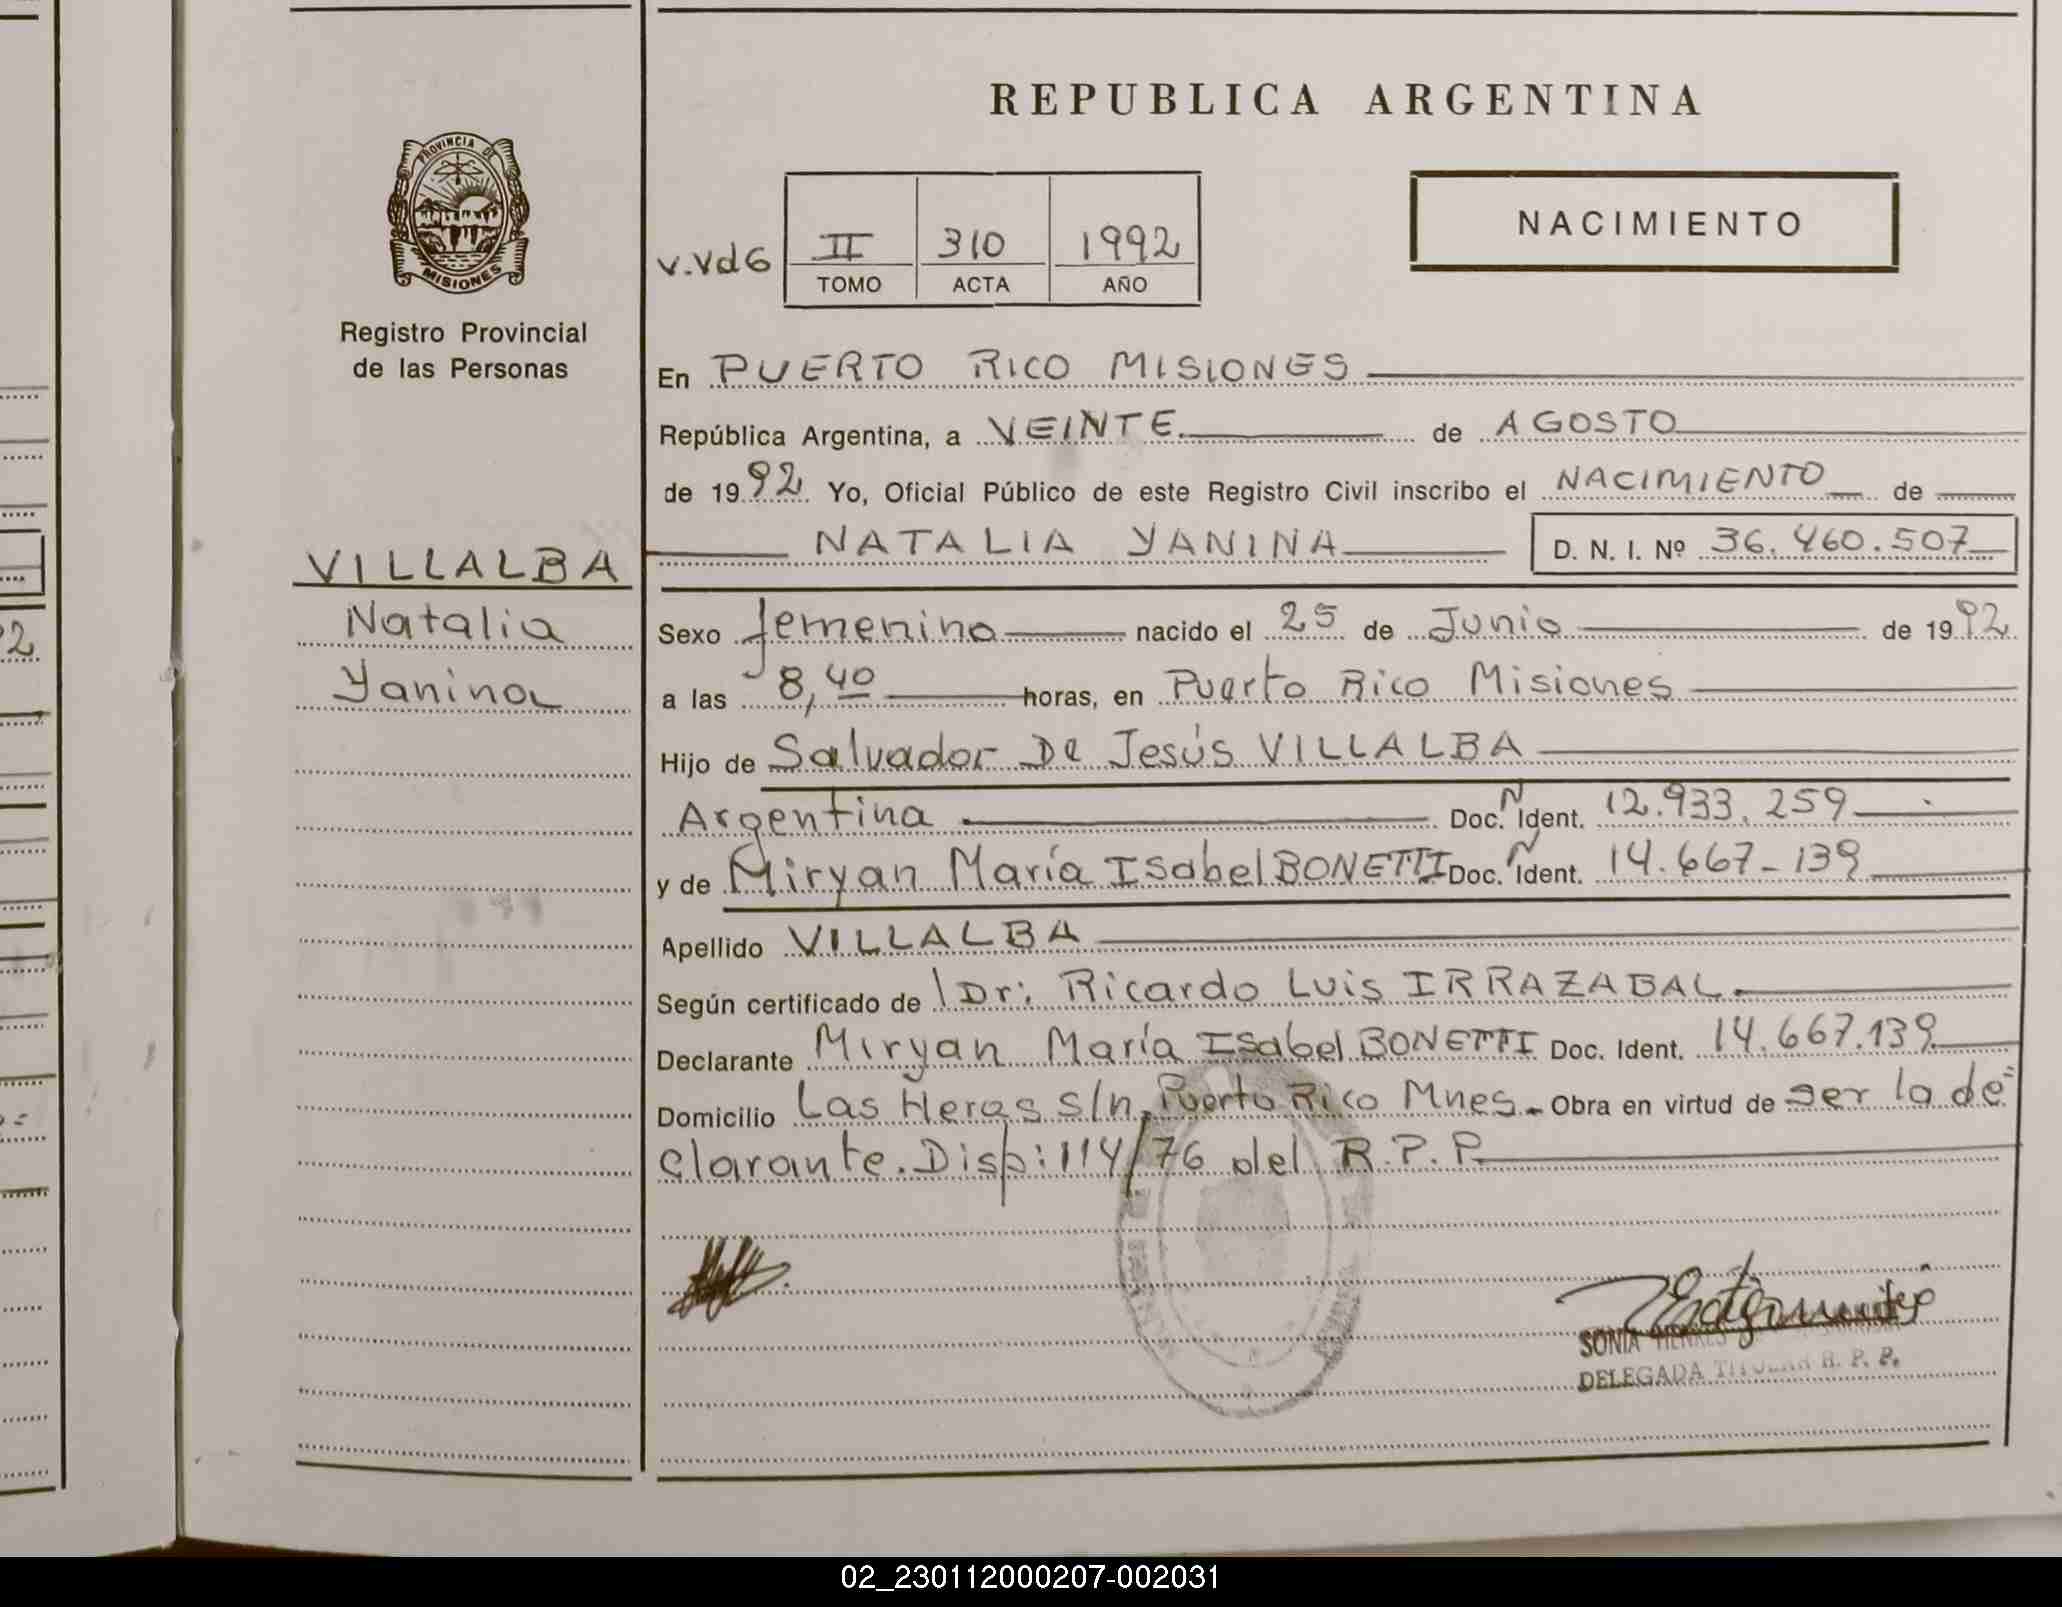 REPUBLICA ARGENTINA
PROVINCIA DE
MISIONES
Registro Provincial
de las Personas
NACIMIENTO
V.Vd6 II 310 1992
TOMO ACTA AÑO
En PUERTO RICO MISIONES
República Argentina, a VEINTE de AGOSTO
de 1992 Yo, Oficial Público de este Registro Civil inscribo el NACIMIENTO de
NATALIA YANINA D. N. I. Nº 36.460.507
VILLALBA
Natalia
Yanina
Sexo femenino nacido el 25 de Junio de 1992
a las 8,40 horas, en Puerto Rico Misiones
Hijo de Salvador De Jesús VILLALBA
Argentina Doc. N Ident. 12.933.259
y de Miryan María Isabel BONETTI Doc. N Ident. 14.667-139
Apellido VILLALBA
Según certificado de Dr: Ricardo Luis IRRAZABAL
Declarante Miryan María Isabel BONETTI Doc. Ident. 14.667.139
Domicilio Las Heras s/n, Puerto Rico Mnes. Obra en virtud de ser la de=
clarante. Disp: 114/76 del R.P.P.
SONIA
DELEGADA TITULAR R. P. P.
02_230112000207-002031